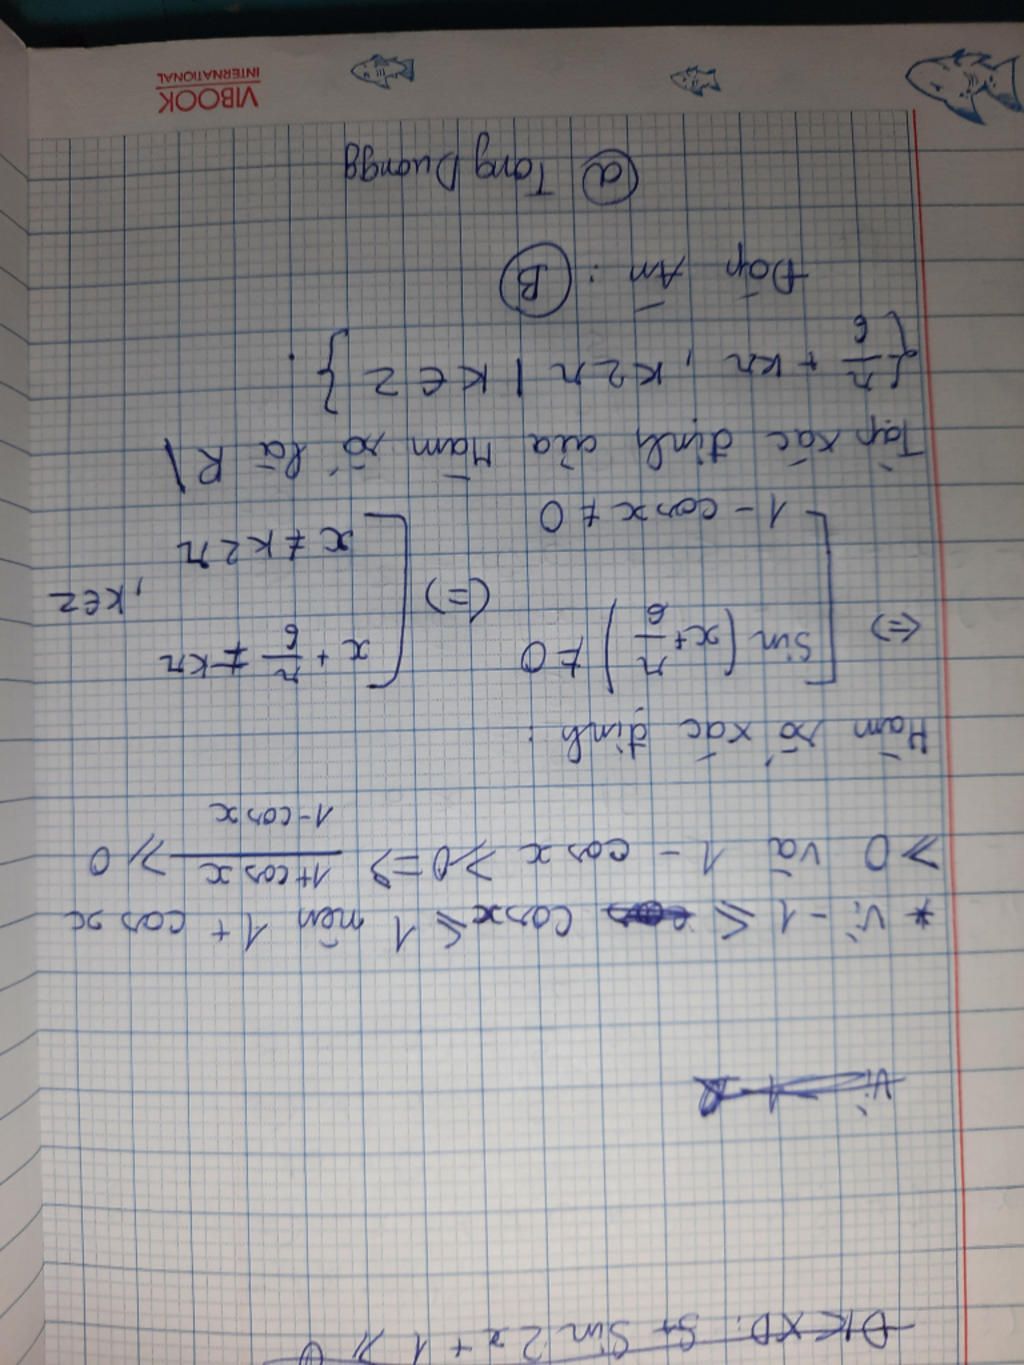 ĐKXĐ: 5+ Sin 2x + 1 ⩾ 0
Vì -1
* Vì -1 ≤ cosx ≤ 1 nên 1 + cos x
⩾ 0 và 1 - cos x ⩾ 0 => (1+cosx)/(1-cosx) ⩾ 0
Hàm số xác định :
<=> [ Sin (x + π/6) ≠ 0 ; 1 - cosx ≠ 0 (=) [ x + π/6 ≠ kπ ; x ≠ k2π , k∈Z
Tập xác định của Hàm số là R\
{π/6 + kπ , k2π | k ∈ Z } .
Đáp Án : B
@ Tang Duongg
VIBOOK
INTERNATIONAL